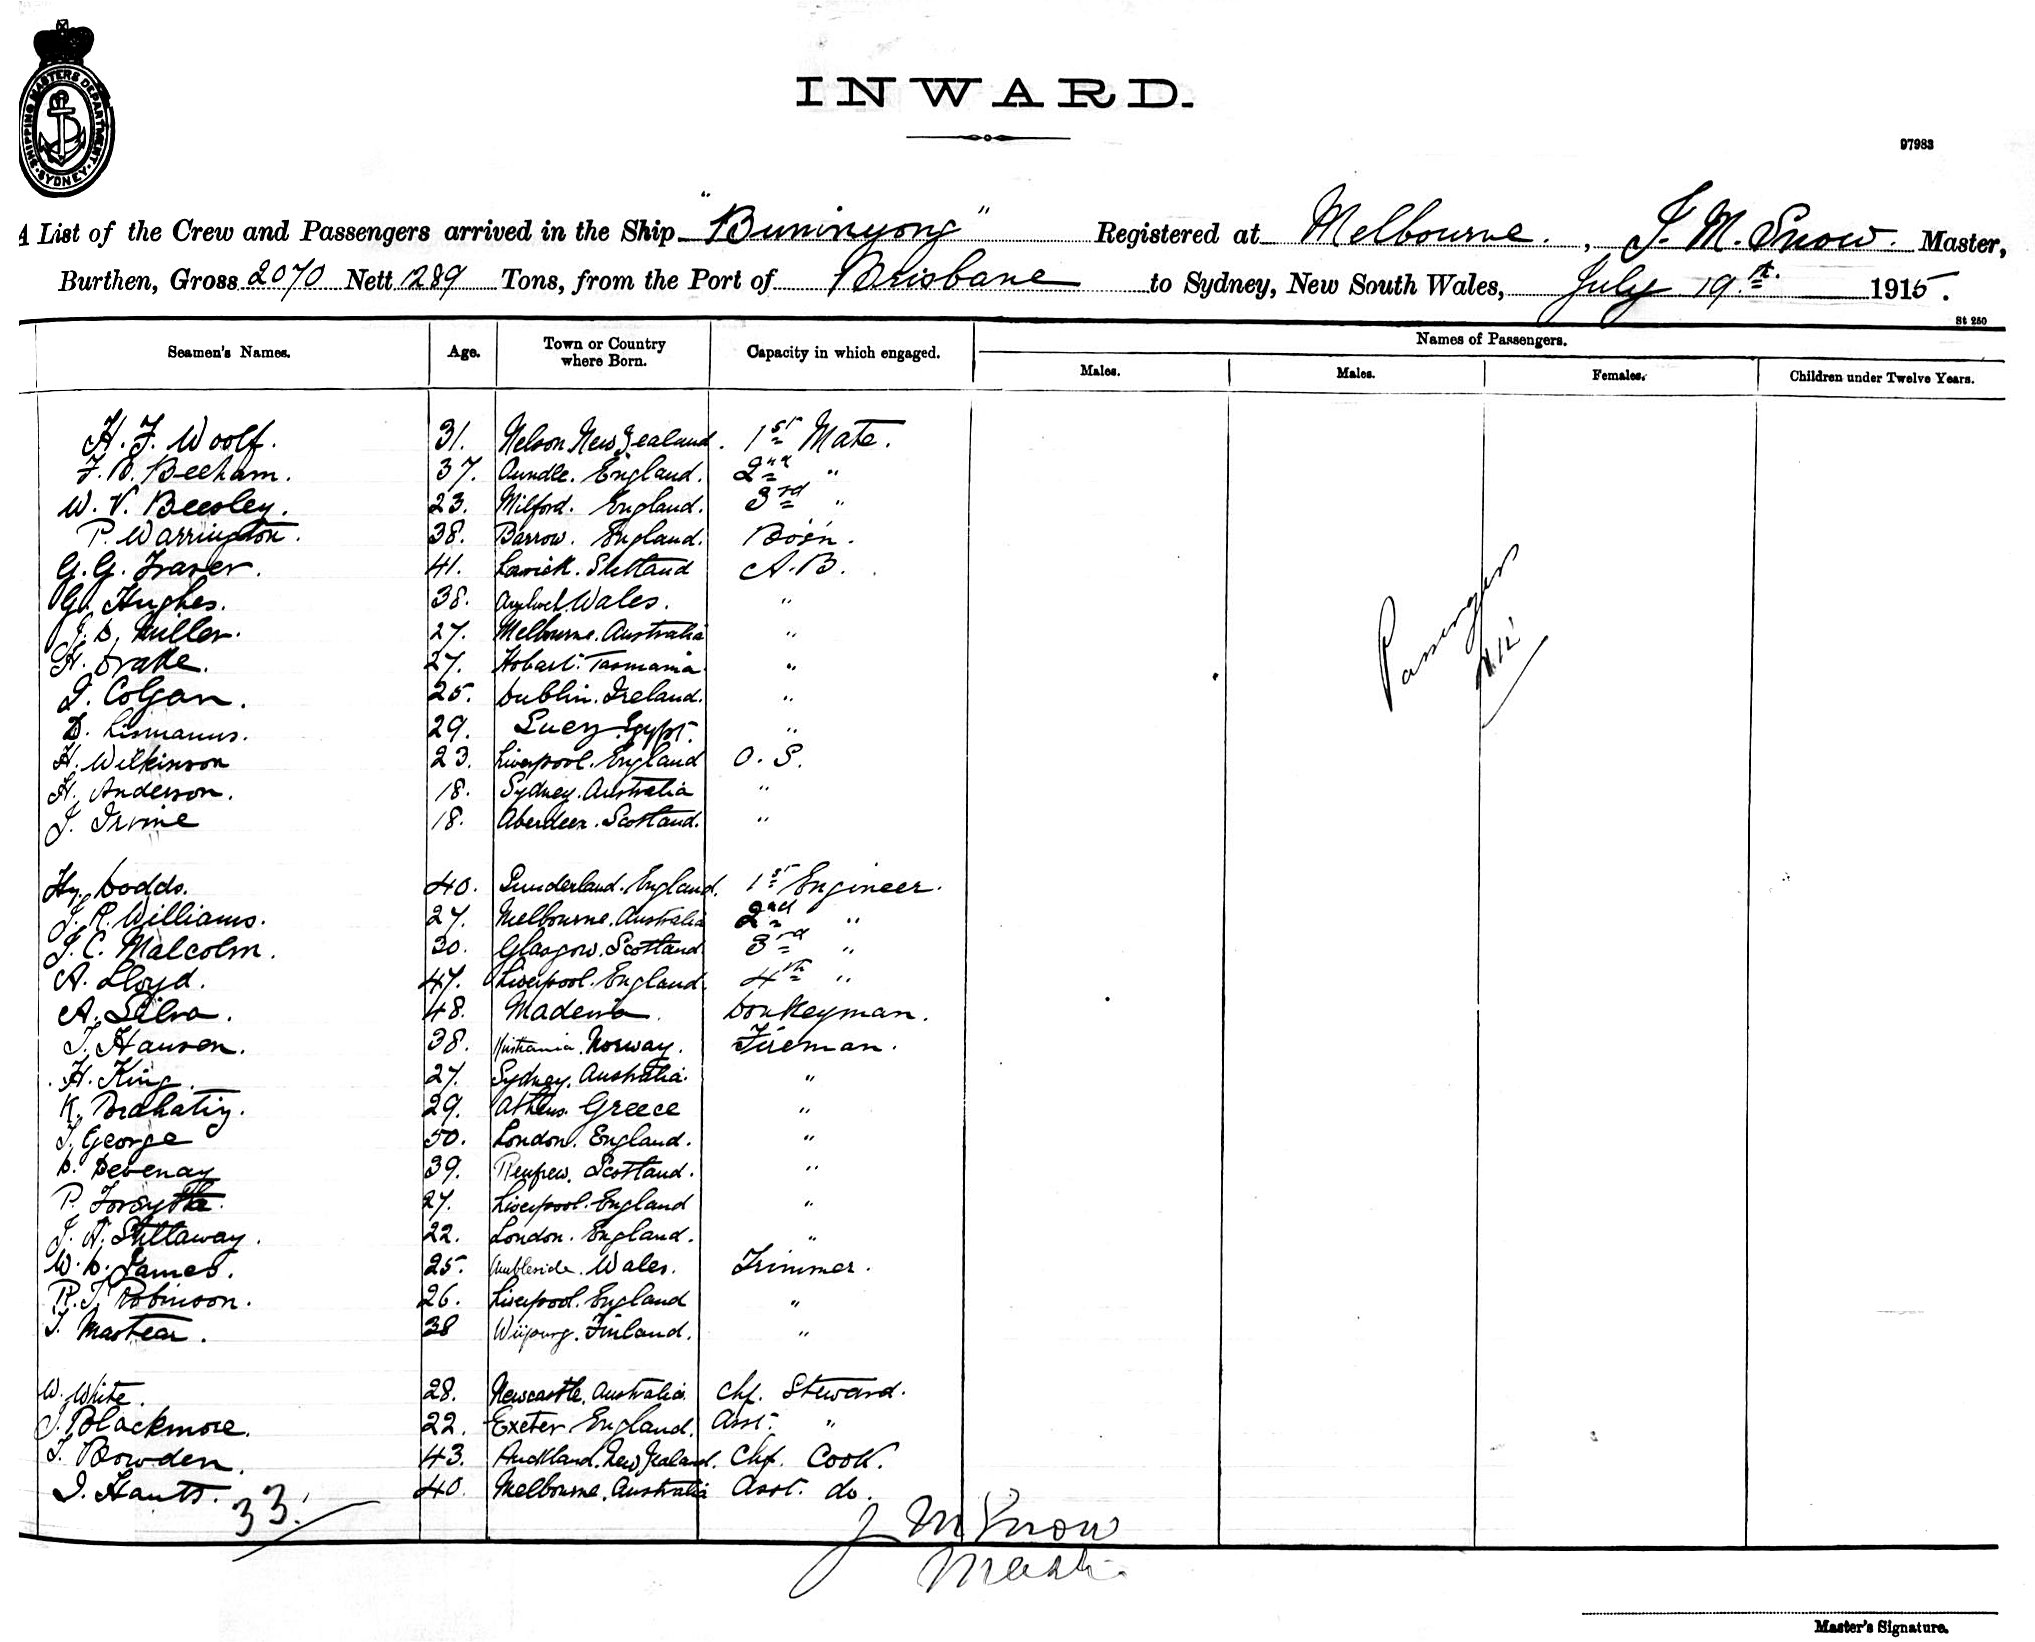 SHIPPING MASTERS DEPARTMENT · SYDNEY ·
INWARD.
97983
A List of the Crew and Passengers arrived in the Ship "Buninyong" Registered at Melbourne. , J. M. Snow. Master,
Burthen, Gross 2070 Nett 1289 Tons, from the Port of Brisbane to Sydney, New South Wales, July 19th. 1915.
St 250
Seamen's Names. Age. Town or Country where Born. Capacity in which engaged. Names of Passengers.
Males. Males. Females. Children under Twelve Years.
H. F. Woolf. 31. Nelson New Zealand. 1st Mate.
F. B. Beeham. 37. England. 2nd "
W. V. Beesley. 23. Milford. England. 3rd "
P. Warrington. 38. Barrow. England. Bosn.
G. G. Fraser. 41. Lerwick. Shetland A.B.
G. Hughes. 38. Wales. "
J. D. Miller. 27. Melbourne. Australia "
H. Drake. 27. Hobart. Tasmania "
J. Colgan. 25. Dublin. Ireland. "
D. 29. Suez. Egypt. "
H. Wilkinson 23. Liverpool. England O. S.
H. Anderson. 18. Sydney. Australia "
J. Irvine 18. Aberdeen. Scotland. "
Hy. Dodds. 40. Sunderland. England. 1st Engineer.
J. R. Williams. 27. Melbourne. Australia 2nd "
J. C. Malcolm. 30. Glasgow. Scotland 3rd "
A. Lloyd. 47. Liverpool. England. 4th "
A. Silva. 48. Madeira. Donkeyman.
J. Hansen. 38. Norway. Fireman.
H. King. 27. Sydney. Australia. "
K. 29. Athens. Greece "
J. George 50. London. England. "
D. Devenay 39. Renfrew. Scotland. "
P. Forsythe. 27. Liverpool. England "
J. A. Stillaway. 22. London. England. "
W. D. James. 25. Ambleside. Wales. Trimmer.
R. J. Robinson. 26. Liverpool. England "
J. 38 Finland. "
W. White. 28. Newcastle. Australia. Chf. Steward.
J. Blackmore. 22. Exeter England. Asst. "
J. Bowden. 43. Auckland. New Zealand. Chf. Cook.
J. 40. Melbourne. Australia Asst. do.
33.
Passengers
J M Snow
Master
Master's Signature.